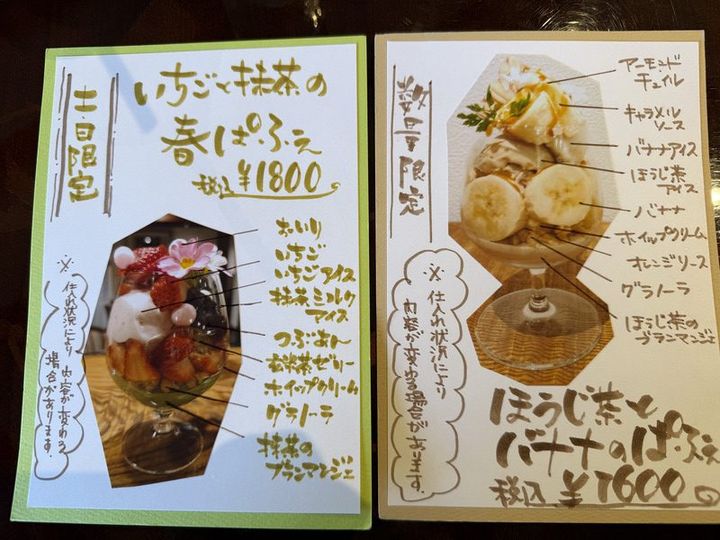 土・日限定
いちごと抹茶の
春ぱふぇ
税込¥1800
おいり
いちご
いちごアイス
抹茶ミルク
アイス
つぶあん
玄米茶ゼリー
ホイップクリーム
グラノーラ
抹茶の
ブランマンジェ
※仕入れ状況により
内容が変わる
場合があります。
数量限定
アーモンド
チュイル
キャラメル
ソース
バナナアイス
ほうじ茶
アイス
バナナ
ホイップクリーム
オレンジソース
グラノーラ
ほうじ茶の
ブランマンジェ
※仕入れ状況により
内容が変わる場合があります。
ほうじ茶と
バナナのぱふぇ
税込¥1600